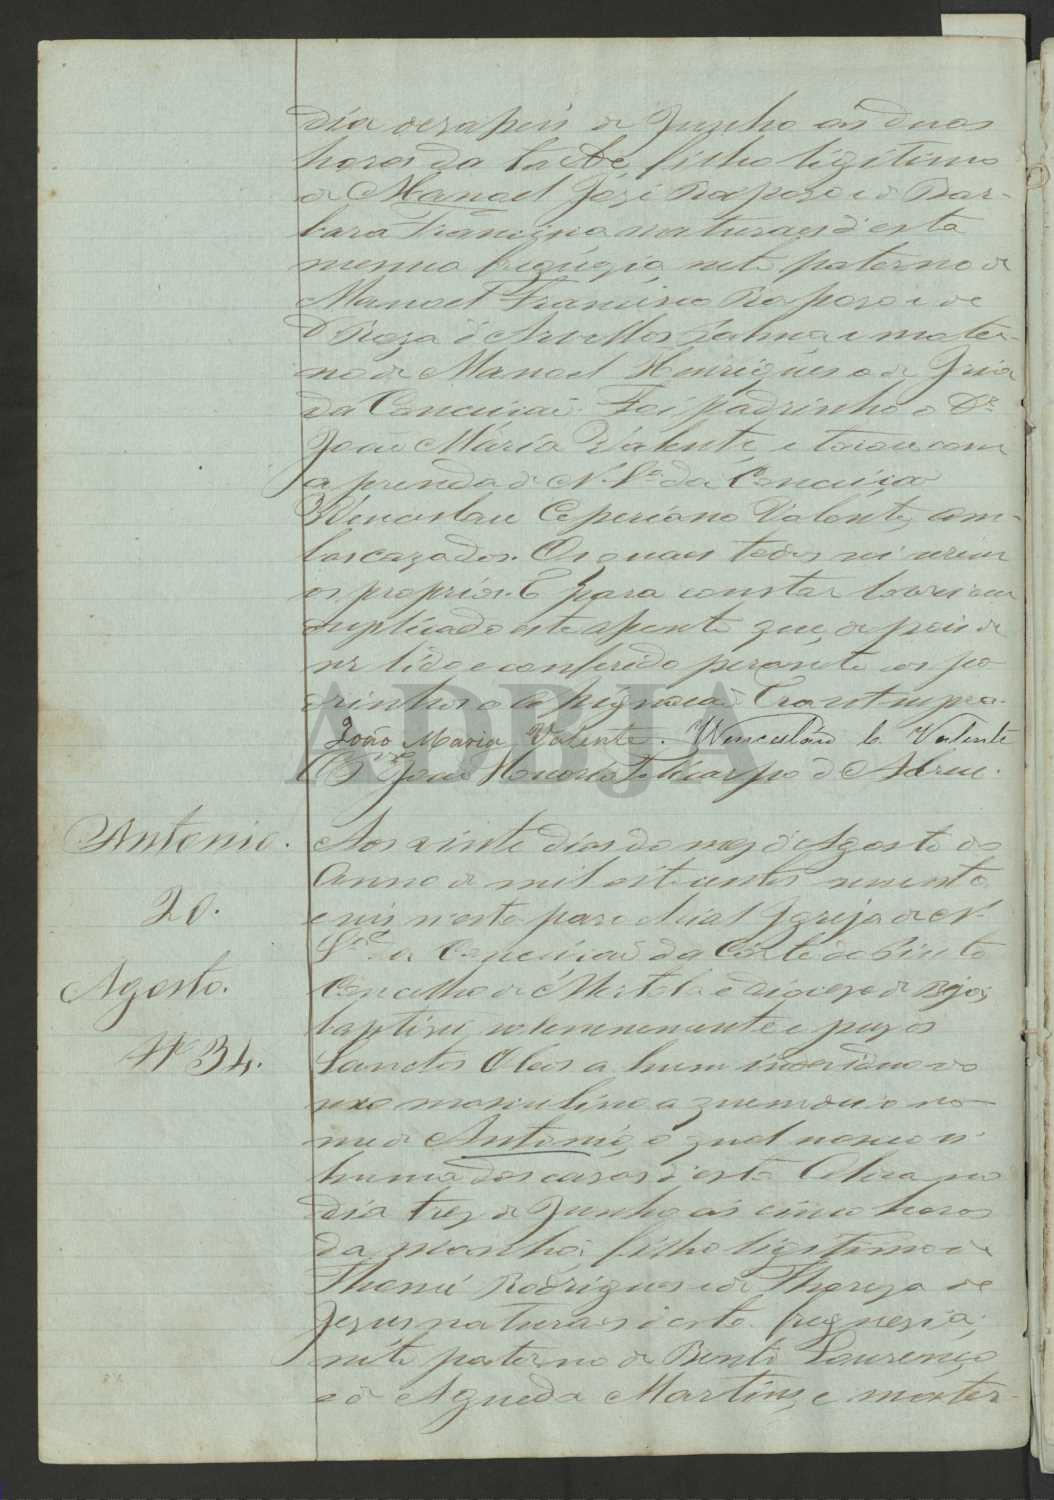 dia dezaseis de Junho ás duas
horas da tarde, filho ligitimo
de Manoel Jozé Raposo e de Bar-
bara Francisca naturaes d'esta
mesma freguezia, neto paterno de
Manoel Francisco Raposo e de
Roza d'Arvellos Palma e mater-
no de Manoel Henriques e de Ignez
da Conceição. Foi padrinho o Dr.
João Maria Valente, e tocou com
a prenda de N. Sra. da Conceição
Wenceslau Ceperiano Valente, am-
bos cazados. Os quaes todos sei serem
os proprios. E para constar lavrei em
duplicado este assento que, depois de
ser lido e conferido perante os pa-
drinhos o assignarão Era ut supra.
João Maria Valente. Wencesláo C. Valente
O Pe. João Maria Policarpo d'Abreu.
Antonio.
20.
Agosto.
Nº 34.
Aos vinte dias do mez d'Agosto do
Anno de mil oitocentos sessenta
e seis n'esta parochial Igreja de N.
Sra. da Conceição da Côrte do Pinto
Concelho de Mertola e diocese de Beja,
baptisei solemnemente e puz os
Sanctos Oleos a hum individuo do
sexo masculino a quem dei o no-
me de Antonio, o qual nasceo em
huma das cazas d'esta Aldea no
dia trez de Junho ás cinco horas
da manhã, filho ligitimo de
Thomé Rodrigues e de Thereza de
Jezus naturaes d'esta freguezia,
neto paterno de Bento Lourenço
e de Agueda Martins, e mater-